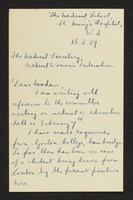 The Medical School,
St. Mary's Hospital,
W.2
16.2.29.
The Medical Secretary,
Medical Women's Federation.
Dear Madam,
I am writing with
reference to the committee
meeting on medical education
held on February 7th
I have made enquiries
from Girton College, Cambridge.
So far there has been no case
of a student being driven from
London by the present position
here.